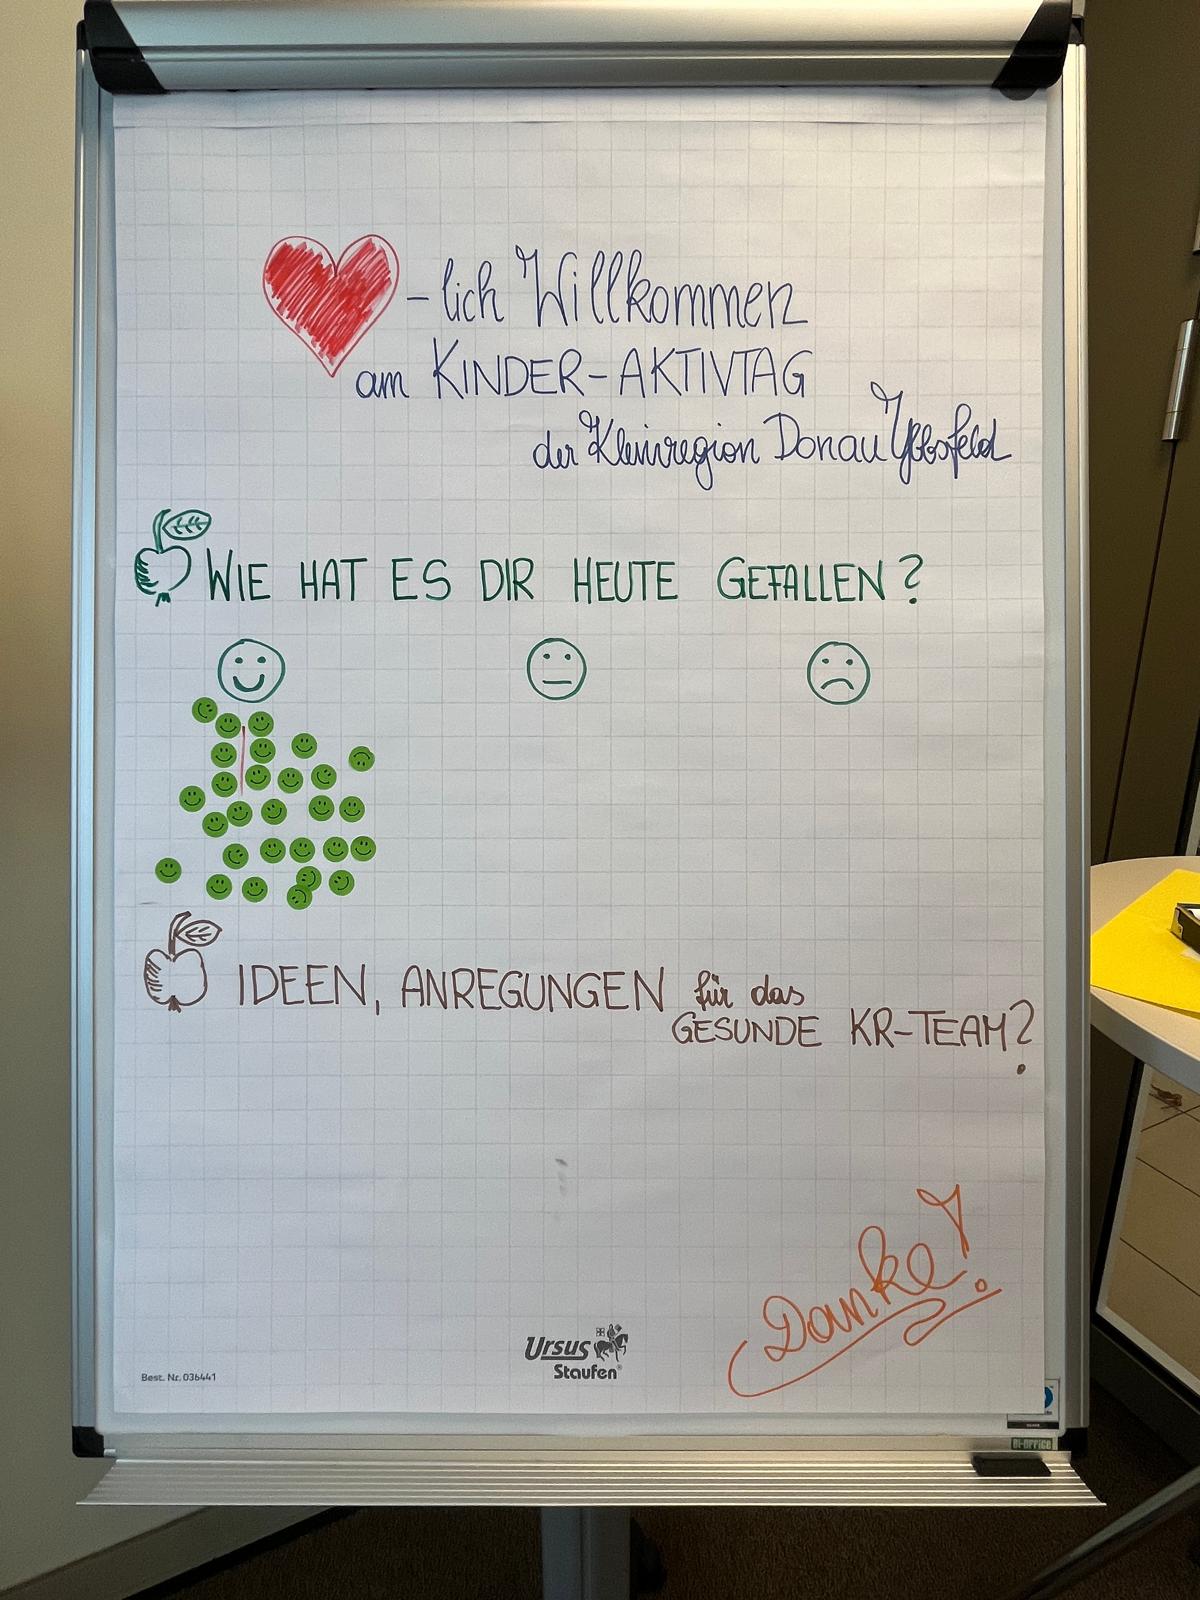 -lich Willkommen
am KINDER-AKTIVTAG
der Kleinregion Donau Ybbsfeld
WIE HAT ES DIR HEUTE GEFALLEN?
IDEEN, ANREGUNGEN für das
GESUNDE KR-TEAM?
Danke!
Ursus
Staufen®
Best. Nr. 036441
BI-OFFICE